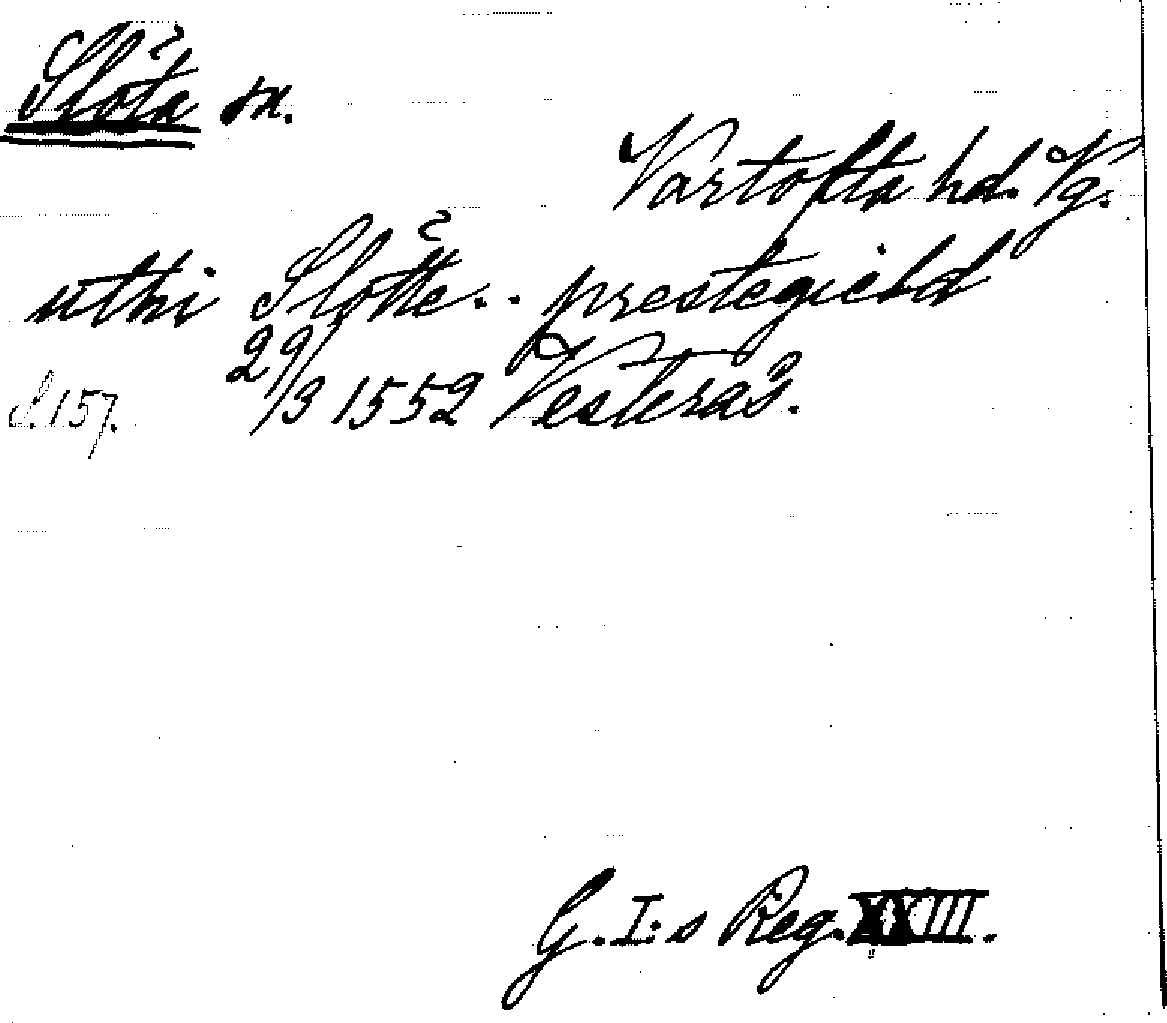 Slöta sn.
Vartofta hd. Vg.
uthi Slötte.. prestegield
S. 157. 29/3 1552 Vesterås.
G. I:s Reg. XXIII.